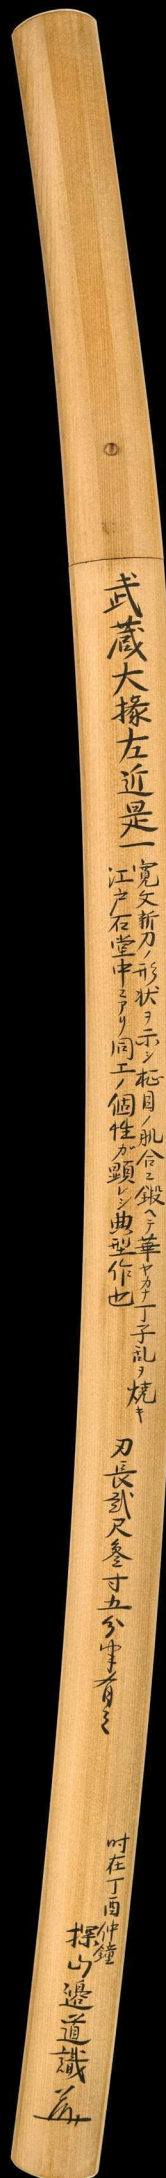 武蔵大掾左近是一
寛文新刀ノ形状ヲ示シ柾目ノ肌合ニ鍛ヘテ華ヤカナ丁子乱ヲ焼キ
江戸石堂中ニアリ同工ノ個性ガ顕レシ典型作也
刃長貳尺参寸五分半有之
時在丁酉仲鐘
探山邉道識